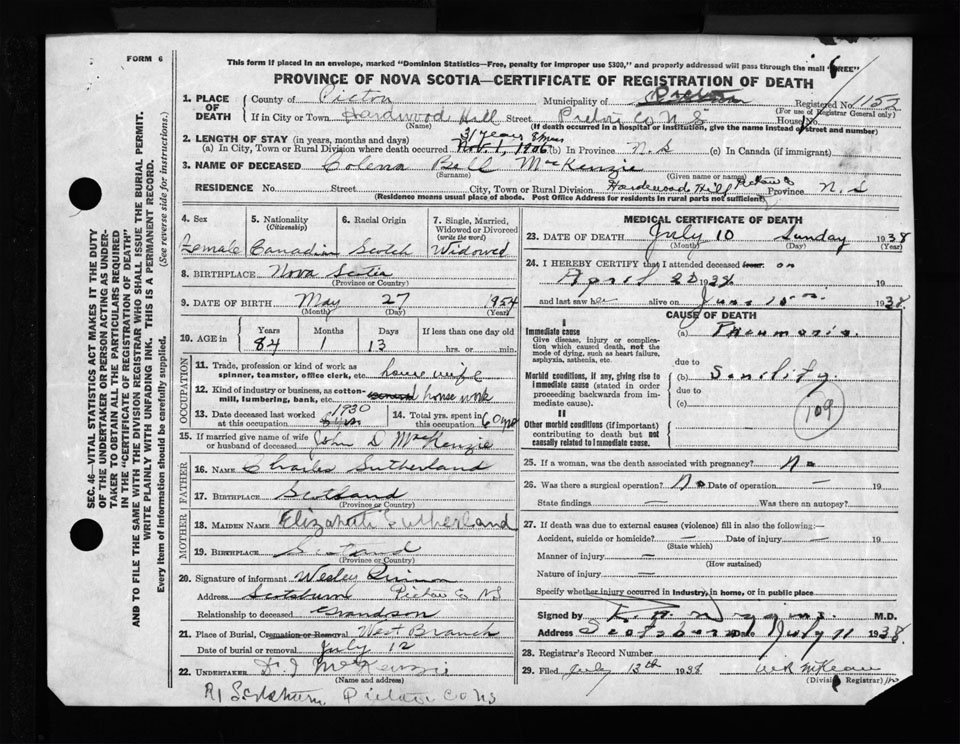 FORM 6
This form if placed in an envelope, marked "Dominion Statistics—Free, penalty for improper use $300," and properly addressed will pass through the mail "FREE"
PROVINCE OF NOVA SCOTIA—CERTIFICATE OF REGISTRATION OF DEATH
SEC. 46—VITAL STATISTICS ACT MAKES IT THE DUTY
OF THE UNDERTAKER OR PERSON ACTING AS UNDER-
TAKER TO OBTAIN ALL THE PARTICULARS REQUIRED
IN THE "CERTIFICATE OF REGISTRATION OF DEATH"
AND TO FILE THE SAME WITH THE DIVISION REGISTRAR WHO SHALL ISSUE THE BURIAL PERMIT.
WRITE PLAINLY WITH UNFADING INK. THIS IS A PERMANENT RECORD.
Every item of information should be carefully supplied. (See reverse side for instructions.)
1. PLACE OF DEATH
County of Pictou Municipality of Pictou Registered No. 1152
(For use of Registrar General only)
If in City or Town Hardwood Hill Street Pictou Co N S House No.
(Name) (If death occurred in a hospital or institution, give the name instead of street and number)
2. LENGTH OF STAY (in years, months and days) 31 years 8 mos
(a) In City, Town or Rural Division where death occurred Nov. 1, 1906 (b) In Province N.S (c) In Canada (if immigrant)
3. NAME OF DECEASED Colena Bell MacKenzie
(Surname) (Given name or names)
RESIDENCE No. Street City, Town or Rural Division Hardwood Hill Pictou Co Province N.S
(Residence means usual place of abode. Post Office Address for residents in rural parts not sufficient)
4. Sex Female
5. Nationality (Citizenship) Canadian
6. Racial Origin Scotch
7. Single, Married, Widowed or Divorced (write the word) Widowed
8. BIRTHPLACE Nova Scotia
(Province or Country)
9. DATE OF BIRTH May 27 1854
(Month) (Day) (Year)
10. AGE in Years Months Days If less than one day old
84 1 13 hrs. or min.
OCCUPATION
11. Trade, profession or kind of work as spinner, teamster, office clerk, etc. house wife
12. Kind of industry or business, as cotton-mill, lumbering, bank, etc. general house work
13. Date deceased last worked at this occupation 1930
14. Total yrs. spent in this occupation 60 yrs
15. If married give name of wife or husband of deceased John D MacKenzie
FATHER
16. NAME Charles Sutherland
17. BIRTHPLACE Scotland
(Province or Country)
MOTHER
18. MAIDEN NAME Elizabeth Sutherland
19. BIRTHPLACE Scotland
(Province or Country)
20. Signature of informant Wesley
Address Scotsburn Pictou Co NS
Relationship to deceased Grandson
21. Place of Burial, Cremation or Removal West Branch
Date of burial or removal July 12
22. UNDERTAKER D. J McKenzie
(Name and address)
R1 Scotsburn Pictou Co NS
MEDICAL CERTIFICATE OF DEATH
23. DATE OF DEATH July 10 Sunday 1938
(Month) (Day) (Year)
24. I HEREBY CERTIFY that I attended deceased from on
April 1938
and last saw her alive on June 15 1938
CAUSE OF DEATH
I
Immediate cause
Give disease, injury or complication which caused death, not the mode of dying, such as heart failure, asphyxia, asthenia, etc.
(a) Pneumonia
due to
Morbid conditions, if any, giving rise to immediate cause (stated in order proceeding backwards from immediate cause).
(b) Senility
due to
(c)
109
II
Other morbid conditions (if important) contributing to death but not causally related to immediate cause.
25. If a woman, was the death associated with pregnancy? No
26. Was there a surgical operation? No Date of operation — 19
State findings — Was there an autopsy?
27. If death was due to external causes (violence) fill in also the following:—
Accident, suicide or homicide? — Date of injury — 19
(State which)
Manner of injury —
(How sustained)
Nature of injury —
Specify whether injury occurred in industry, in home, or in public place
Signed by M.D.
Address Scotsburn Date July 11 1938
28. Registrar's Record Number
29. Filed July 13th 1938
(Division Registrar)